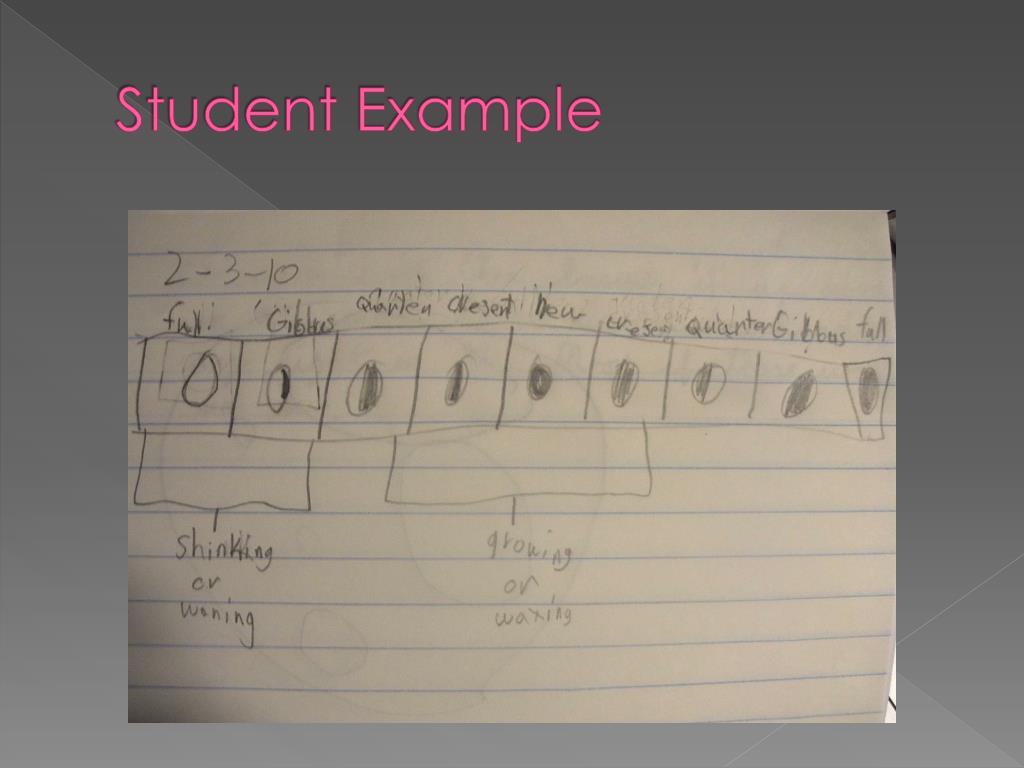 Student Example
2-3-10
full Gibbus Quarten cresent New cresent Quianter Gibbus full
shinking growing
or or
waning waxing